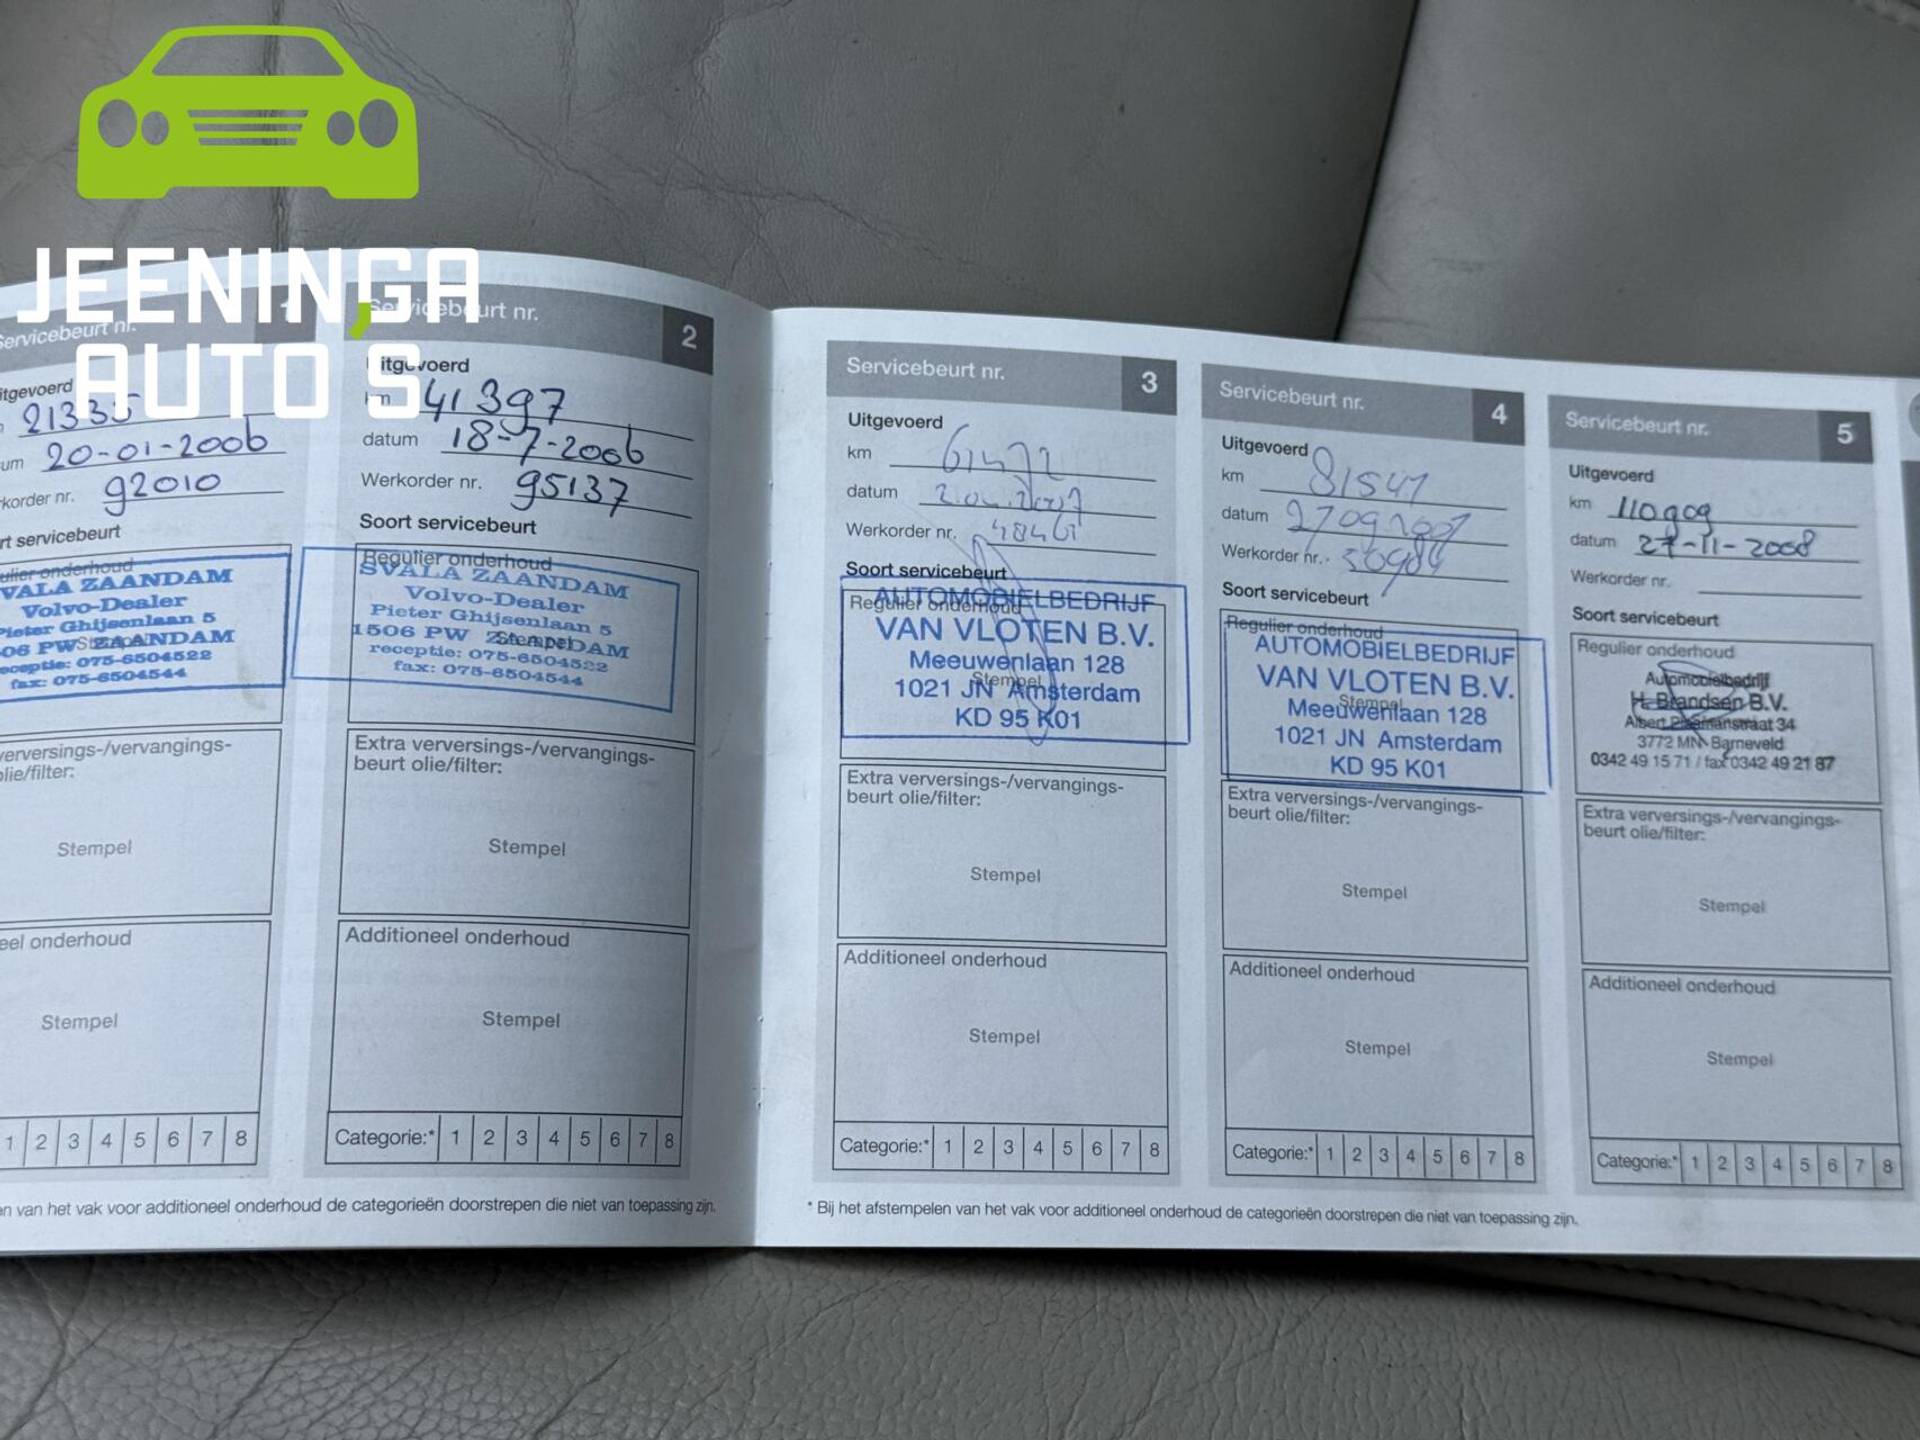 JEENINGA
AUTO'S
Servicebeurt nr.
itgevoerd
21335
um 20-01-2006
korder nr. 92010
rt servicebeurt
ulier onderhoud
VALA ZAANDAM
Volvo-Dealer
Pieter Ghijsenlaan 5
06 PW ZAANDAM
eceptie: 075-6504522
fax: 075-6504544
verversings-/vervangings-
olie/filter:
Stempel
eel onderhoud
Stempel
1 2 3 4 5 6 7 8
en van het vak voor additioneel onderhoud de categorieën doorstrepen die niet van toepassing zijn.
Servicebeurt nr. 2
itgevoerd
km 41397
datum 18-7-2006
Werkorder nr. 95137
Soort servicebeurt
Regulier onderhoud
SVALA ZAANDAM
Volvo-Dealer
Pieter Ghijsenlaan 5
1506 PW ZAANDAM
Stempel
receptie: 075-6504522
fax: 075-6504544
Extra verversings-/vervangings-
beurt olie/filter:
Stempel
Additioneel onderhoud
Stempel
Categorie:* 1 2 3 4 5 6 7 8
Servicebeurt nr. 3
Uitgevoerd
km 61472
datum
Werkorder nr.
Soort servicebeurt
Regulier onderhoud
AUTOMOBIELBEDRIJF
VAN VLOTEN B.V.
Meeuwenlaan 128
Stempel
1021 JN Amsterdam
KD 95 K01
Extra verversings-/vervangings-
beurt olie/filter:
Stempel
Additioneel onderhoud
Stempel
Categorie:* 1 2 3 4 5 6 7 8
* Bij het afstempelen van het vak voor additioneel onderhoud de categorieën doorstrepen die niet van toepassing zijn.
Servicebeurt nr. 4
Uitgevoerd
km 81541
datum 27092007
Werkorder nr.
Soort servicebeurt
Regulier onderhoud
AUTOMOBIELBEDRIJF
VAN VLOTEN B.V.
Stempel
Meeuwenlaan 128
1021 JN Amsterdam
KD 95 K01
Extra verversings-/vervangings-
beurt olie/filter:
Stempel
Additioneel onderhoud
Stempel
Categorie:* 1 2 3 4 5 6 7 8
Servicebeurt nr. 5
Uitgevoerd
km 110909
datum 27-11-2008
Werkorder nr.
Soort servicebeurt
Regulier onderhoud
Automobielbedrijf
H. Brandsen B.V.
Albert Plesmanstraat 34
3772 MN Barneveld
0342 49 15 71 / fax 0342 49 21 87
Extra verversings-/vervangings-
beurt olie/filter:
Stempel
Additioneel onderhoud
Stempel
Categorie:* 1 2 3 4 5 6 7 8